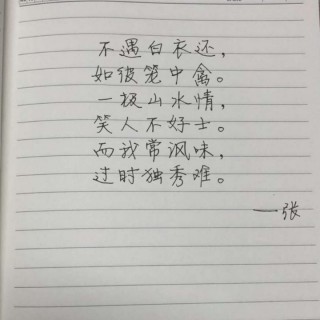 不遇白衣还，
如彼笼中禽。
一极山水情，
笑人不好士。
而我常沨味，
过时独秀难。
一张